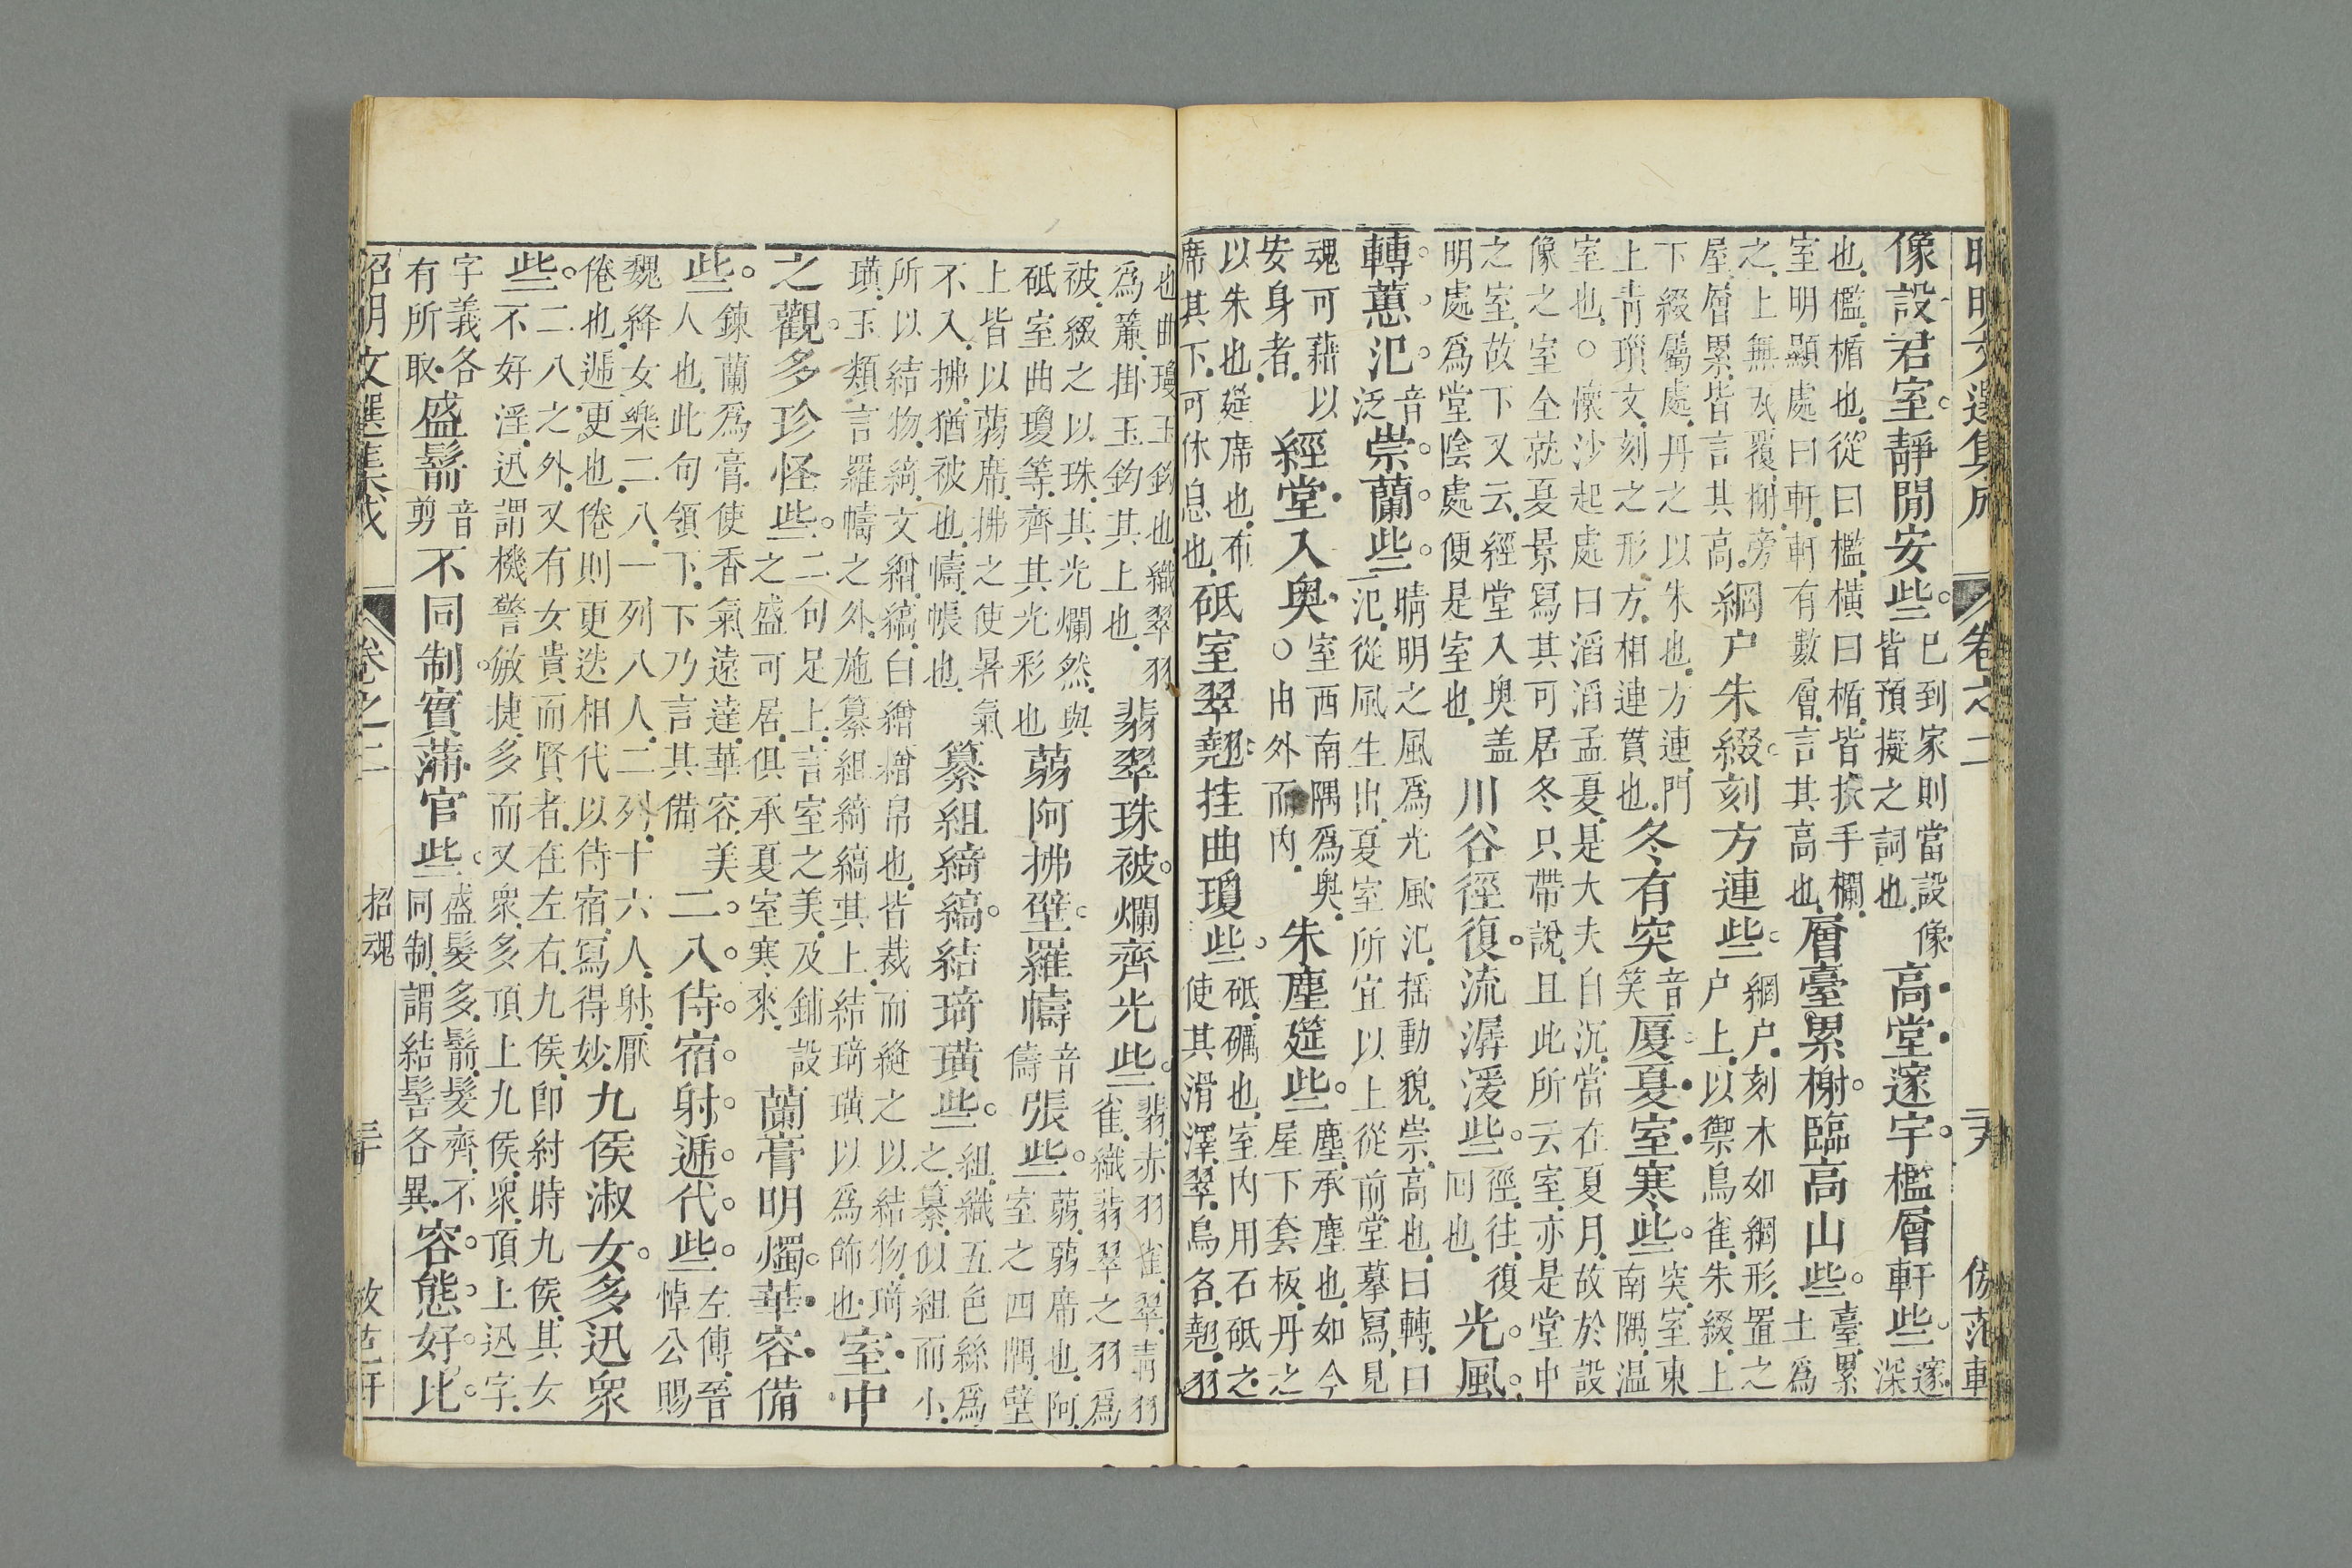 像設君室靜閒安些已到家則當設像皆預擬之詞也高堂邃宇檻層軒些邃深
也檻楯也從曰檻橫曰楯皆扶手欄室明顯處曰軒軒有數層言其高也層臺累榭臨高山些臺累土爲
之上無瓦覆榭旁屋層累皆言其高網户朱綴刻方連些網户刻木如網形置之户上以禦鳥雀朱綴上
下綴屬處丹之以朱也方連門上靑瑣文刻之形方相連貫也冬有突音笑厦夏室寒些突室東南隅温
室也○懷沙起處曰滔滔孟夏是大夫自沉當在夏月故於設像之室全就夏景寫其可居冬只帶說且此所云室亦是堂中
之室故下又云經堂入奥盖明處爲堂陰處便是室也川谷徑復流潺湲些徑往復囘也光風
轉蕙氾音泛崇蘭些晴明之風爲光風氾搖動貌崇高也曰轉曰氾從風生出夏室所宜以上從前堂摹寫見
魂可藉以安身者經堂入奥室西南隅爲奥○由外而内朱塵筵些塵承塵也如今屋下套板丹之
以朱也筵席也布席其下可休息也砥室翠翹挂曲瓊些砥礪也室内用石砥之使其滑澤翠鳥名翹羽
也曲瓊玉鈎也織翠羽爲簾掛玉鈎其上也翡翠珠被爛齊光些翡赤羽雀翠靑羽雀織翡翠之羽爲
被綴之以珠其光爛然與砥室曲瓊等齊其光彩也蒻阿拂壁羅幬音儔張些蒻蒻席也阿室之四隅壁
上皆以蒻席拂之使暑氣不入拂猶被也幬帳也纂組綺縞結琦璜些組織五色絲爲之纂似組而小
所以結物綺文繒縞白繒繒帛也皆裁而縫之以結物琦璜玉類言羅幬之外施纂組綺縞其上結琦璜以爲飾也室中
之觀多珍怪些二句足上言室之美及鋪設之盛可居俱承夏室寒來蘭膏明燭華容備
些鍊蘭爲膏使香氣遠達華容美人也此句領下下乃言其備二八侍宿射遞代些左傳晉悼公賜
魏絳女樂二八一列八人二列十六人射厭倦也遞更也倦則更迭相代以侍宿寫得妙九侯淑女多迅衆
些二八之外又有女貴而賢者在左右九侯卽紂時九侯其女不好淫迅謂機警敏捷多而又衆多頂上九侯衆頂上迅字
字義各有所取盛鬋音剪不同制實蒲官些盛髪多鬋髮齊不同制謂結髻各異容態好比
昭明文選集成 卷之二 招魂